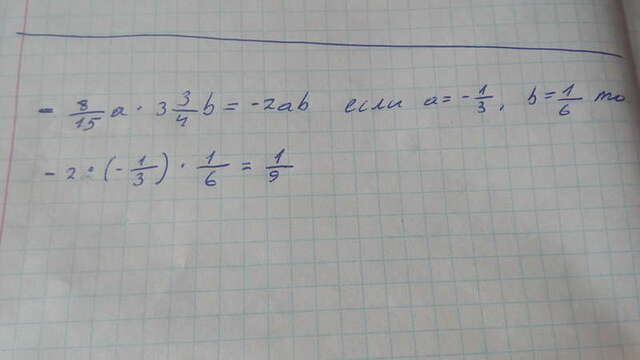 - 8/15 a · 3 3/4 b = -2ab если a = - 1/3, b = 1/6 то
- 2 · (- 1/3) · 1/6 = 1/9